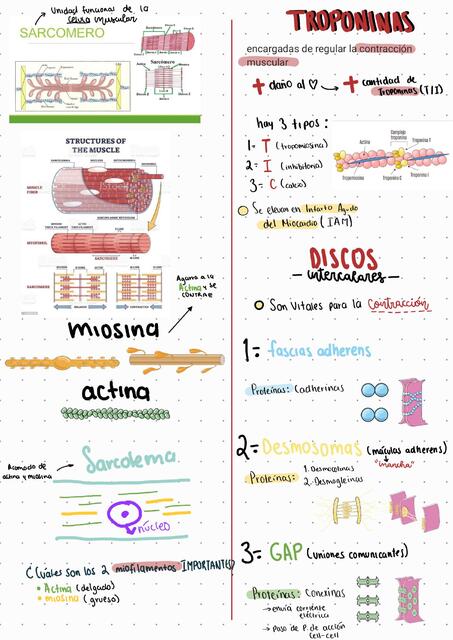 Unidad funcional de la
célula muscular
SARCOMERO
Sarcómero
STRUCTURES OF
THE MUSCLE
MUSCLE
FIBER
MYOFIBRIL
SARCOMERE
SARCOMERE
Agarra a la
Actina y se
CONTRAE
miosina
actina
Sarcolema
Acomodo de
actina y miosina
núcleo
¿Cuáles son los 2 miofilamentos IMPORTANTES?
• Actina (delgado)
• miosina (grueso)
TROPONINAS
encargadas de regular la contracción
muscular
+ daño al ♡ → + cantidad de
Troponinas (T/I)
hay 3 tipos:
1= T (tropomiosina)
2= I (inhibitoria)
3= C (calcio)
Actina
Complejo
troponina
Troponina T
Tropomiosina
Troponina C
Troponina I
Se elevan en Infarto Agudo
del Miocardio (IAM)
DISCOS
— intercalares —
Son Vitales para la Contracción
1= fascias adherens
Proteínas: Cadherinas
2= Desmosomas (máculas adherens)
"mancha"
Proteínas:
1. Desmocolinas
2. Desmogleinas
3= GAP (uniones comunicantes)
Proteínas: Conexinas
→ envía corriente
eléctrica
→ Paso de P. de acción
cell-cell